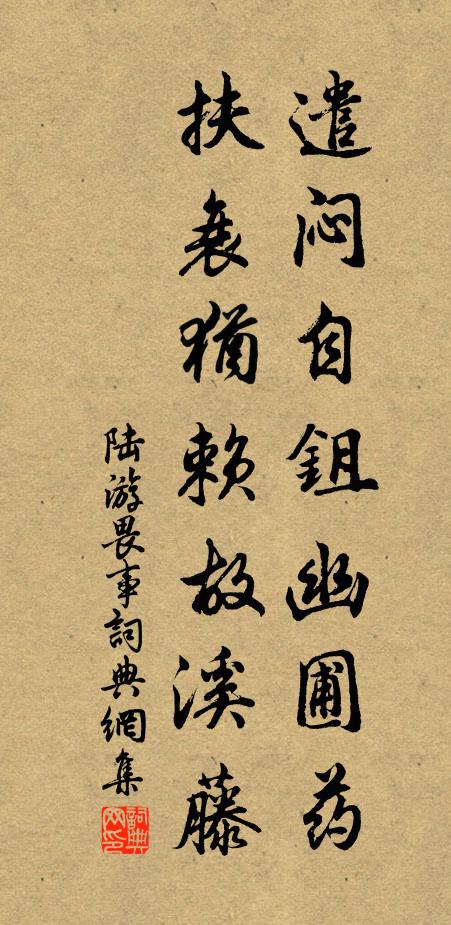 遣闷自鉏幽圃药
扶衰犹赖故溪藤
陆游畏事詞典網集
詞典网印